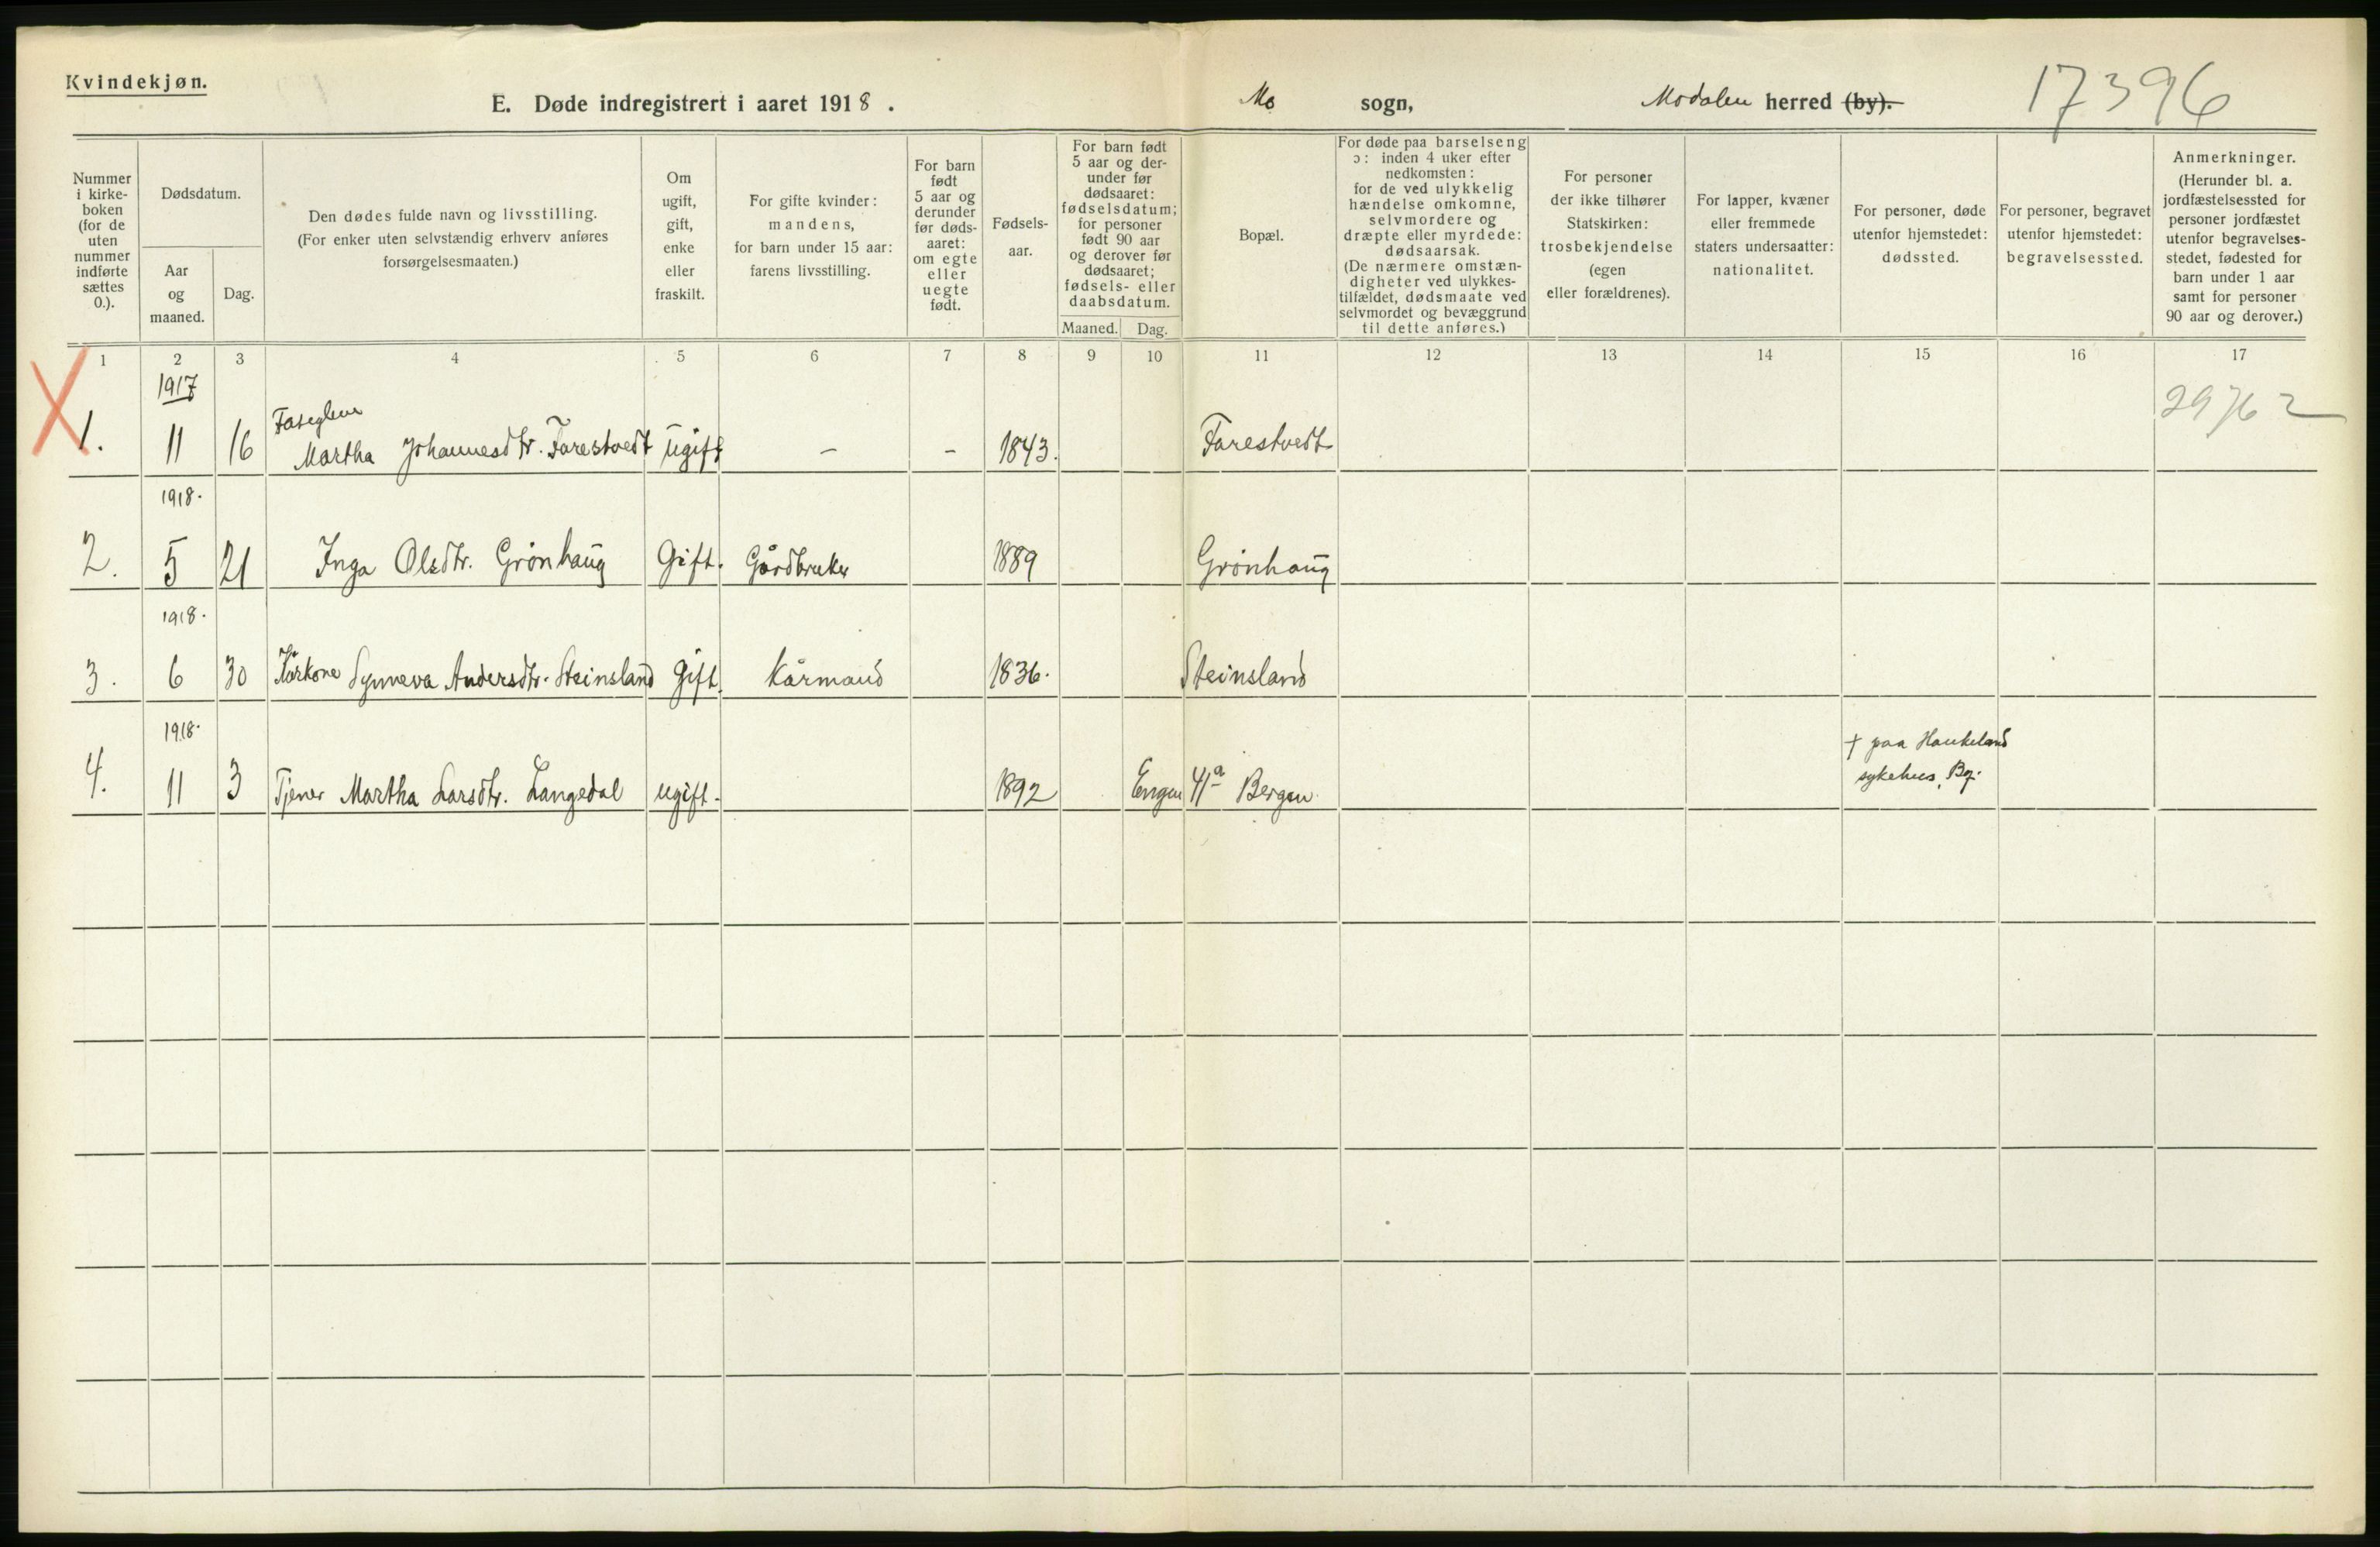 Kvindekjøn.
E. Døde indregistrert i aaret 1918.
Mo sogn,
Modalen herred (by).
17396
Nummer
i kirke-
boken
(for de
uten
nummer
indførte
sættes
0.).
Dødsdatum.
Aar
og
maaned.
Dag.
Den dødes fulde navn og livsstilling.
(For enker uten selvstændig erhverv anføres
forsørgelsesmaaten.)
Om
ugift,
gift,
enke
eller
fraskilt.
For gifte kvinder:
mandens,
for barn under 15 aar:
farens livsstilling.
For barn
født
5 aar og
derunder
før døds-
aaret:
om egte
eller
uegte
født.
Fødsels-
aar.
For barn født
5 aar og der-
under før
dødsaaret:
fødselsdatum;
for personer
født 90 aar
og derover før
dødsaaret;
fødsels- eller
daabsdatum.
Maaned. Dag.
Bopæl.
For døde paa barselseng
ɔ: inden 4 uker efter
nedkomsten:
for de ved ulykkelig
hændelse omkomne,
selvmordere og
dræpte eller myrdede:
dødsaarsak.
(De nærmere omstæn-
digheter ved ulykkes-
tilfældet, dødsmaate ved
selvmordet og bevæggrund
til dette anføres.)
For personer
der ikke tilhører
Statskirken:
trosbekjendelse
(egen
eller forældrenes).
For lapper, kvæner
eller fremmede
staters undersaatter:
nationalitet.
For personer, døde
utenfor hjemstedet:
dødssted.
For personer, begravet
utenfor hjemstedet:
begravelsessted.
Anmerkninger.
(Herunder bl. a.
jordfæstelsessted for
personer jordfæstet
utenfor begravelses-
stedet, fødested for
barn under 1 aar
samt for personer
90 aar og derover.)
1 2 3 4 5 6 7 8 9 10 11 12 13 14 15 16 17
1917
29762
1. 11 16 Martha Johannesdtr. Farestvedt ugift - - 1843. Farestvedt
1918.
2. 5 21 Inga Olsdtr. Grønhaug Gift. Gårdbruker 1889 Grønhaug
1918.
3. 6 30 Kårkone Synneva Andersdtr. Steinsland Gift. Kårmand 1836. Steinsland
1918.
† paa Haukeland
sykehus, Bg.
4. 11 3 Tjener Martha Larsdtr. Langedal ugift. 1892 Engen 41a Bergen.